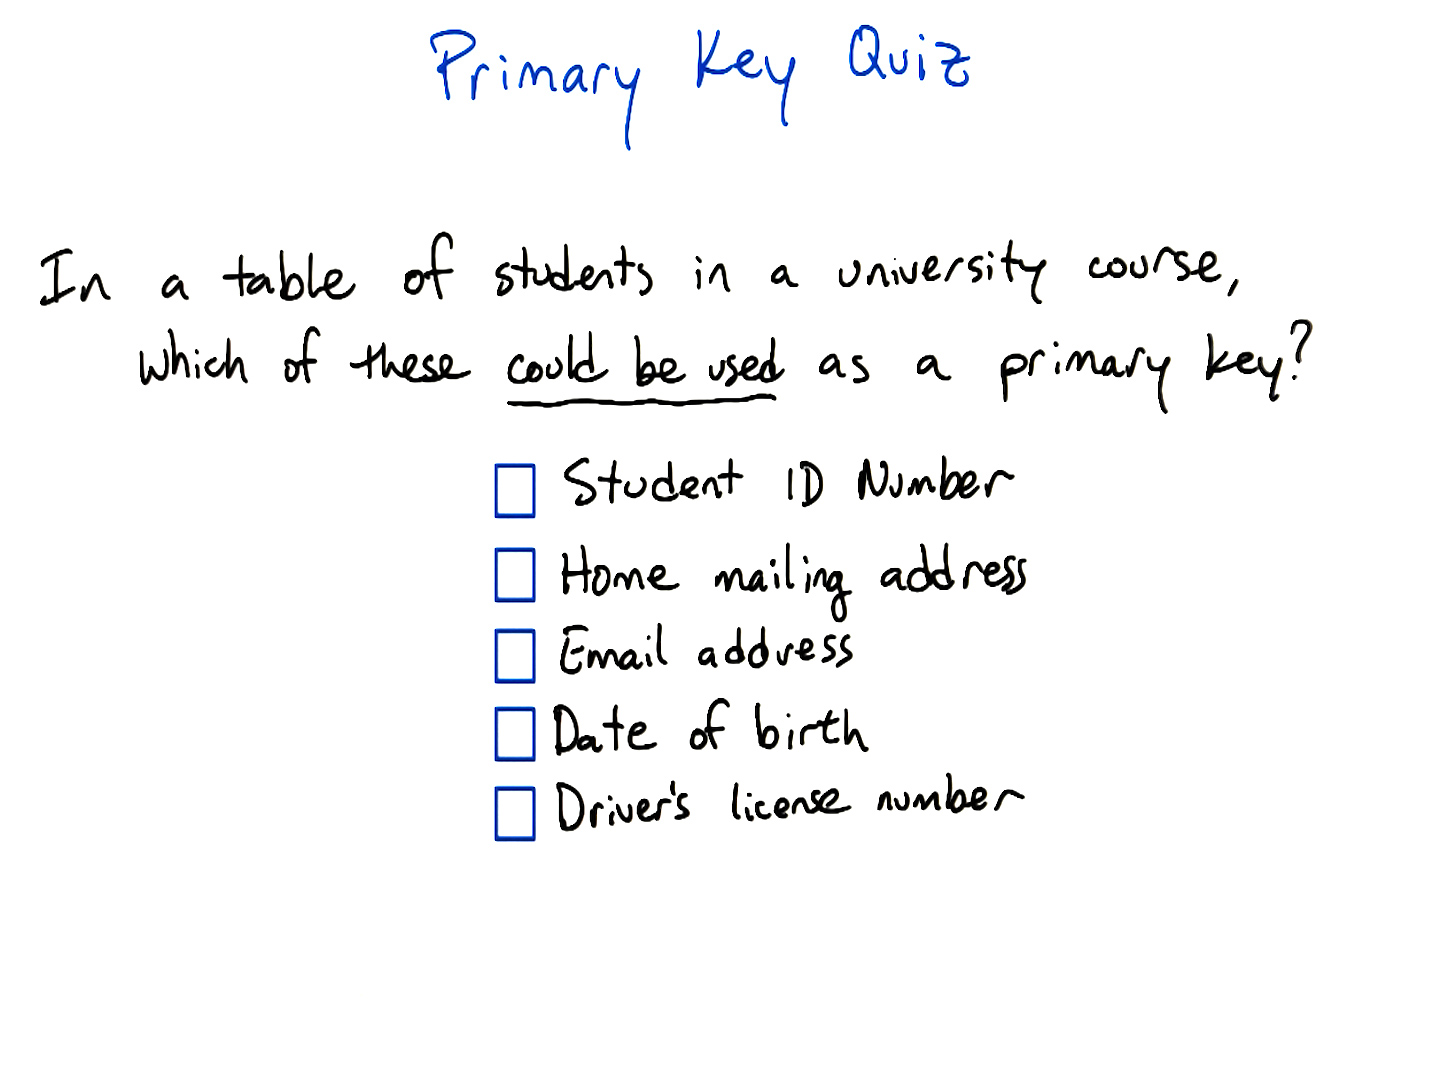 Primary Key Quiz
In a table of students in a university course,
which of these could be used as a primary key?
Student ID Number
Home mailing address
Email address
Date of birth
Driver's license number